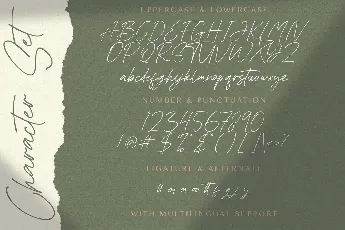 Character Set
UPPERCASE & LOWERCASE
ABCDEFGHIJKLMN
OPQRSTUVWXYZ
abcdefghijklmnopqrstuvwxyz
NUMBER & PUNCTUATION
1234567890
LIGATURE & ALTERNATE
WITH MULTILINGUAL SUPPORT